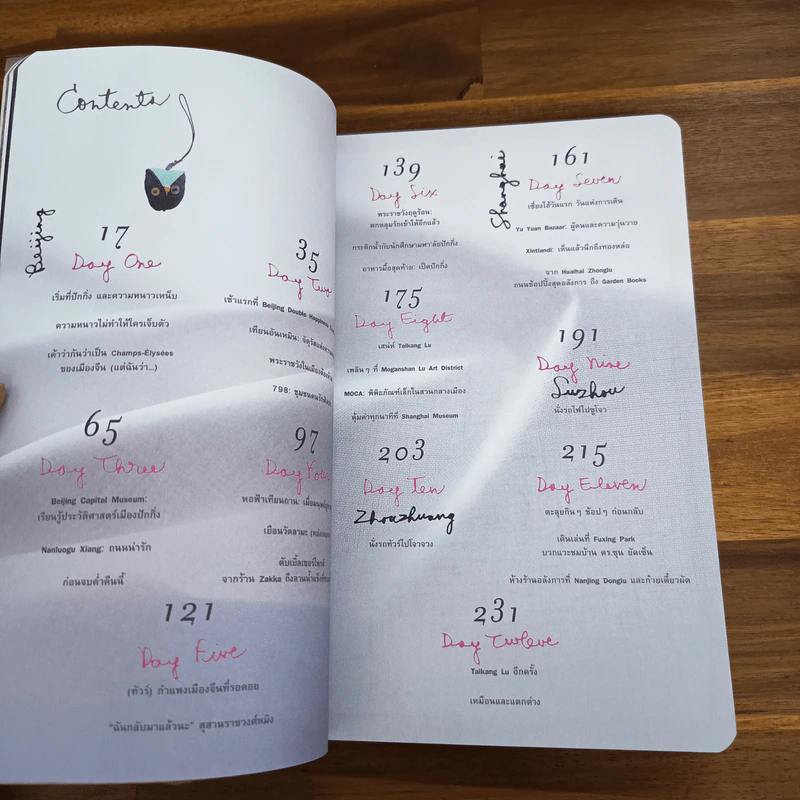 Contents
Beijing
17
Day One
เริ่มที่ปักกิ่ง และความหนาวเหน็บ
ความหนาวไม่ทำให้ใครเจ็บตัว
เค้าว่ากันว่าเป็น Champs-Élysées
ของเมืองจีน (แต่ฉันว่า...)
35
Day Two
เช้าแรกที่ Beijing Double Happiness
เทียนอันเหมิน: จัตุรัสแห่ง
พระราชวังในเมืองต้องห้าม
798: ชุมชนคน
65
Day Three
Beijing Capital Museum:
เรียนรู้ประวัติศาสตร์เมืองปักกิ่ง
Nanluogu Xiang: ถนนน่ารัก
ก่อนจบค่ำคืนนี้
97
Day Four
หอฟ้าเทียนถาน: เมื่อมนุษย์
เยือนวัดลามะ
ดับเบิ้ลเซอร์ไพรส์
จากร้าน Zakka ถึงลานน้ำแข็ง
121
Day Five
(ทัวร์) กำแพงเมืองจีนที่รอคอย
"ฉันกลับมาแล้วนะ" สุสานราชวงศ์หมิง
139
Day Six
พระราชวังฤดูร้อน:
ตกหลุมรักเข้าให้อีกแล้ว
กระติกน้ำกับนักศึกษามหา'ลัยปักกิ่ง
อาหารมื้อสุดท้าย: เป็ดปักกิ่ง
Shanghai
161
Day Seven
เซี่ยงไฮ้วันแรก วันแห่งการเดิน
Yu Yuan Bazaar: ผู้คนและความวุ่นวาย
Xintiandi: เห็นแล้วนึกถึงทองหล่อ
จาก Huaihai Zhonglu
ถนนช้อปปิ้งสุดอลังการ ถึง Garden Books
175
Day Eight
เสน่ห์ Taikang Lu
เพลินๆ ที่ Moganshan Lu Art District
MOCA: พิพิธภัณฑ์เล็กในสวนกลางเมือง
คุ้มค่าทุกนาทีที่ Shanghai Museum
191
Day Nine
Suzhou
นั่งรถไฟไปซูโจว
203
Day Ten
Zhouzhuang
นั่งรถทัวร์ไปโจวจวง
215
Day Eleven
ตะลุยกินๆ ช้อปๆ ก่อนกลับ
เดินเล่นที่ Fuxing Park
บวกแวะชมบ้าน ดร.ซุน ยัดเซ็น
ห้างร้านอลังการที่ Nanjing Donglu และก๋วยเตี๋ยวผัด
231
Day Twelve
Taikang Lu อีกครั้ง
เหมือนและแตกต่าง